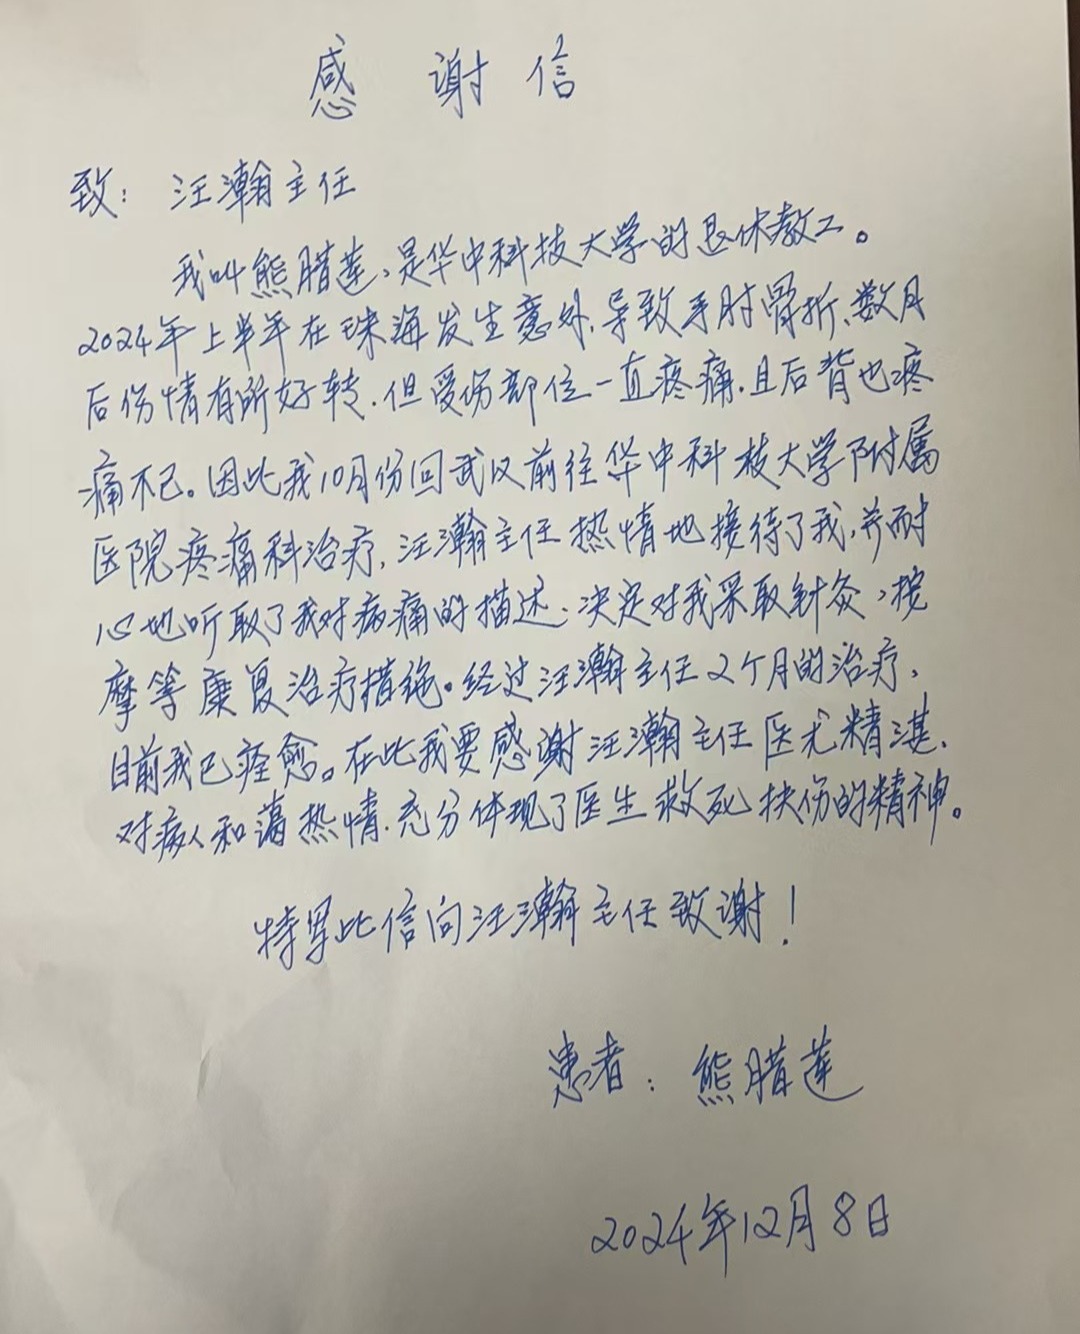 感谢信
致：汪瀚主任
我叫熊腊莲，是华中科技大学的退休教工。
2024年上半年在珠海发生意外，导致手肘骨折、数月
后伤情有所好转，但受伤部位一直疼痛，且后背也疼
痛不已。因此我10月份回武汉前往华中科技大学附属
医院疼痛科治疗，汪瀚主任热情地接待了我，并耐
心地听取了我对病痛的描述，决定对我采取针灸，按
摩等康复治疗措施。经过汪瀚主任2个月的治疗，
目前我已痊愈。在此我要感谢汪瀚主任医术精湛，
对病人和蔼热情，充分体现了医生救死扶伤的精神。
特写此信向汪瀚主任致谢！
患者：熊腊莲
2024年12月8日